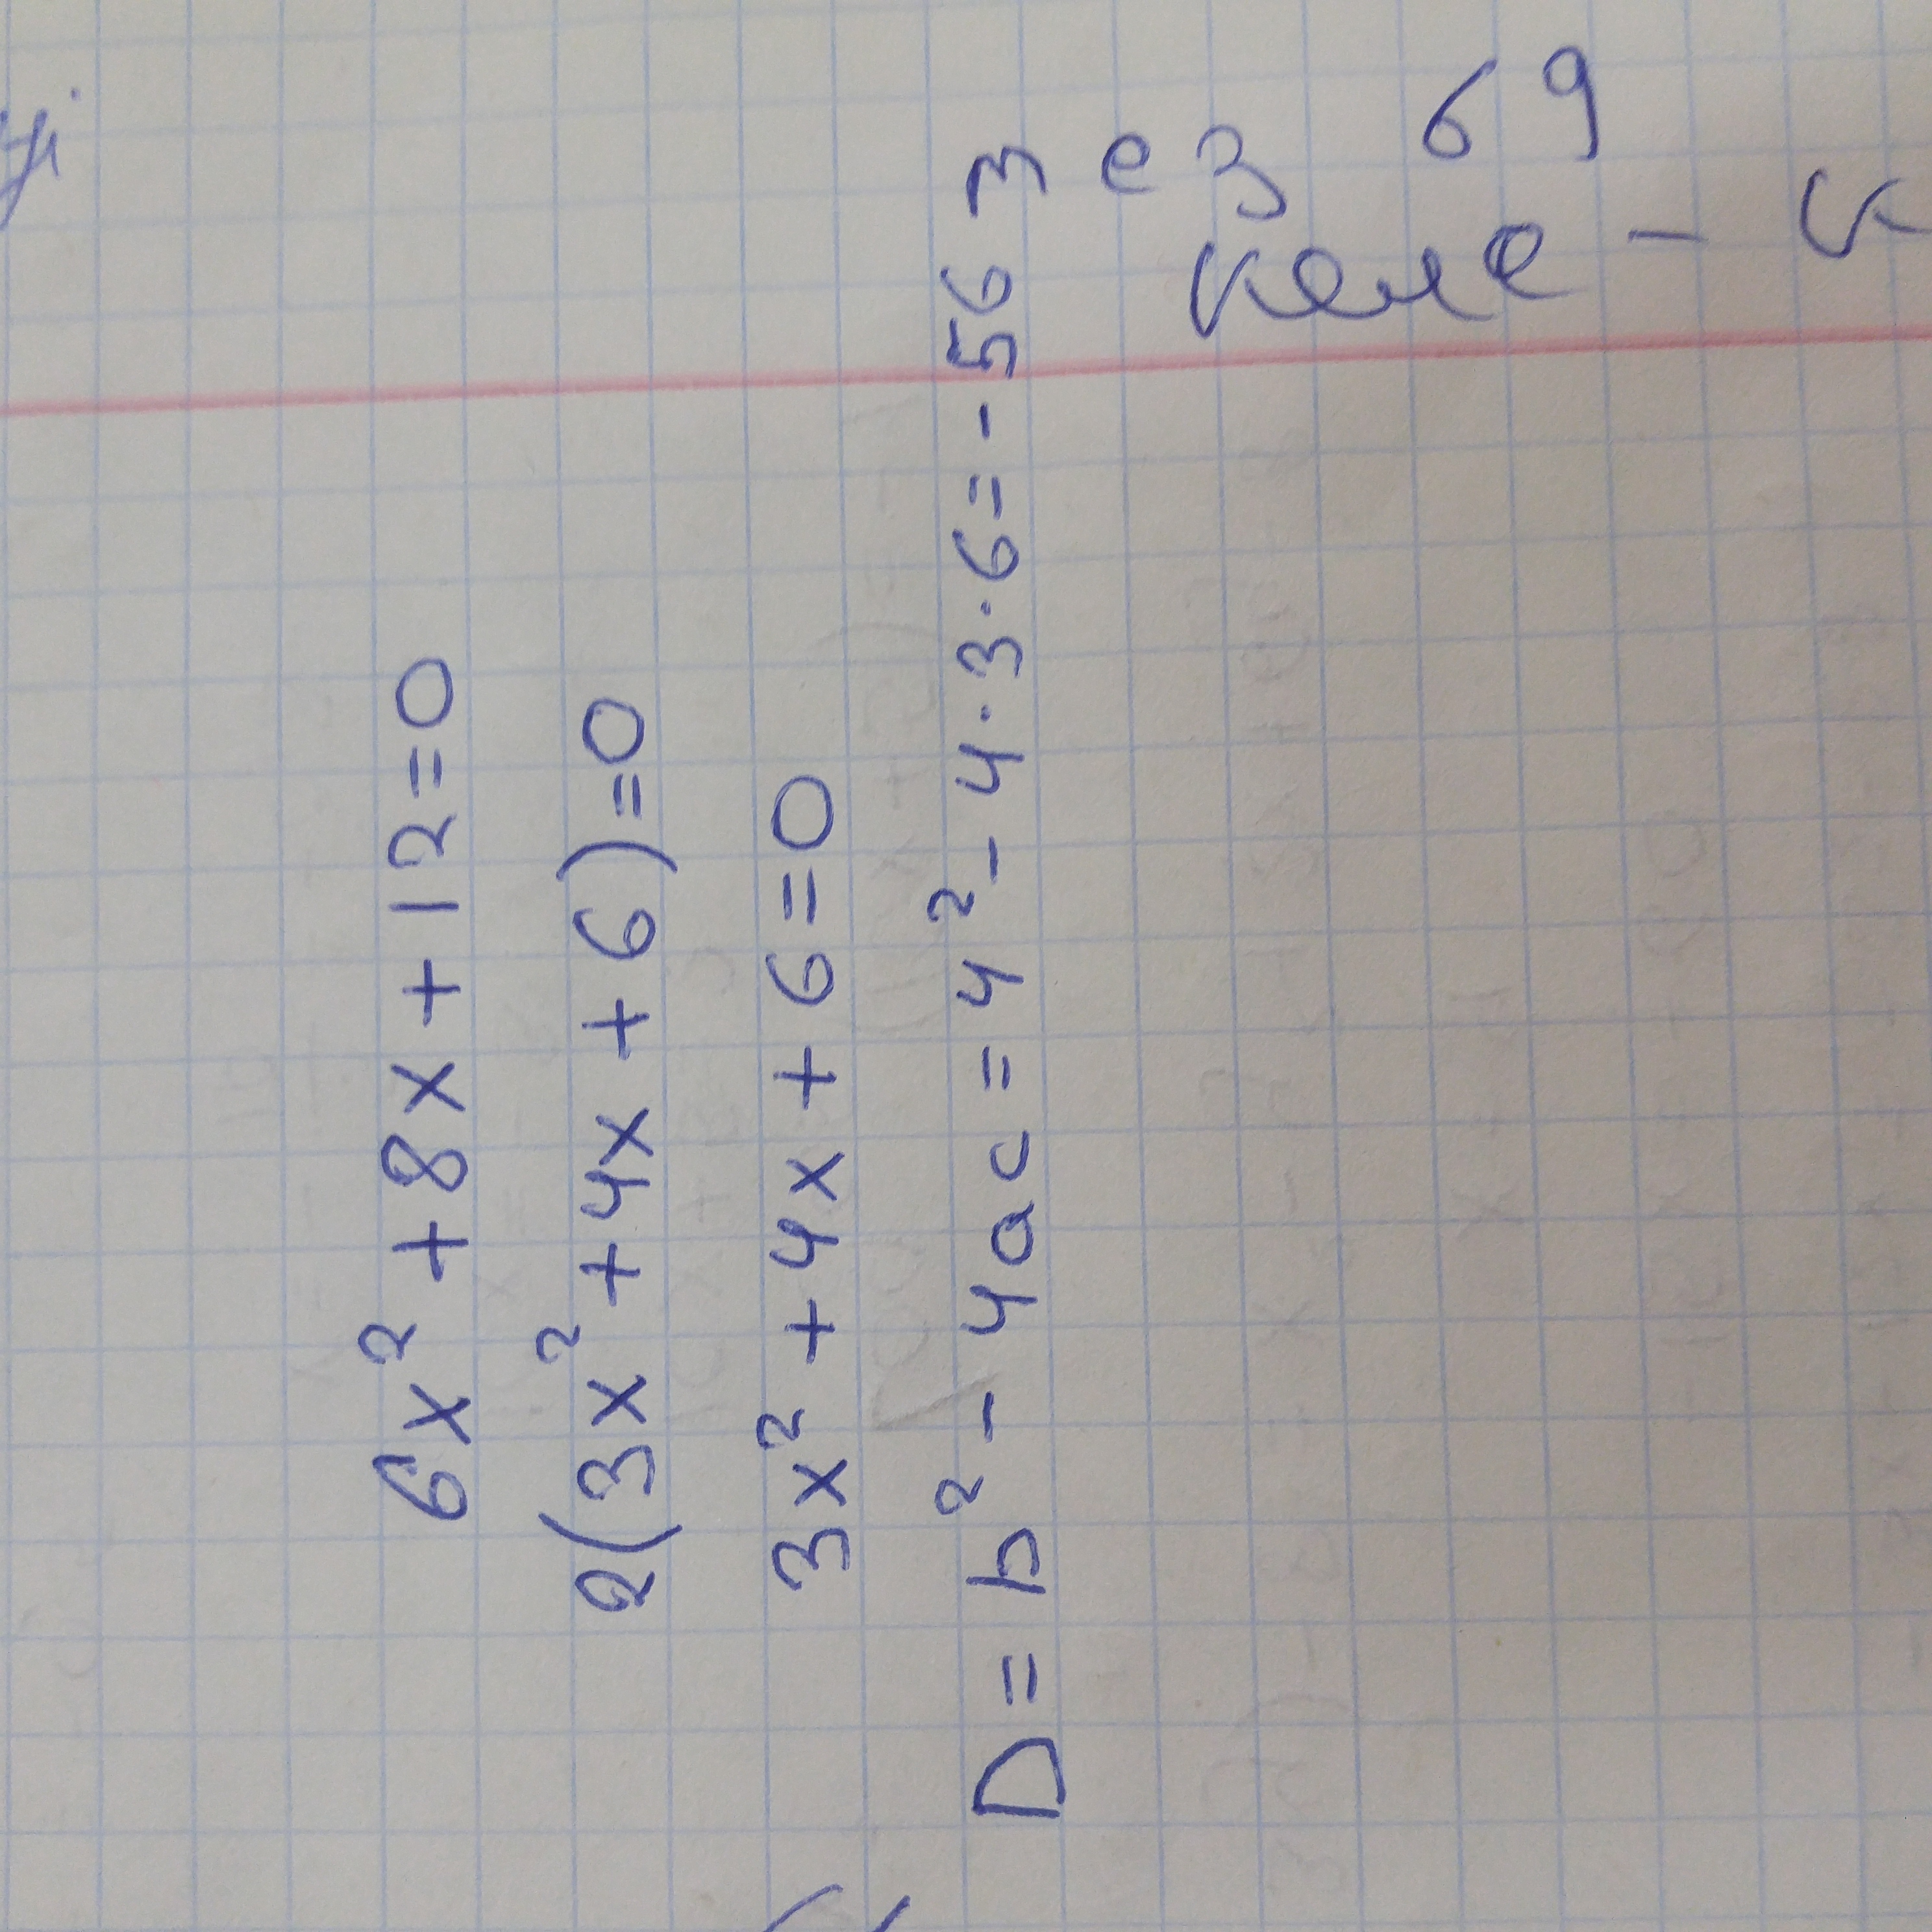 6x² + 8x + 12 = 0
2(3x² + 4x + 6) = 0
3x² + 4x + 6 = 0
D = b² - 4ac = 4² - 4 · 3 · 6 = -56